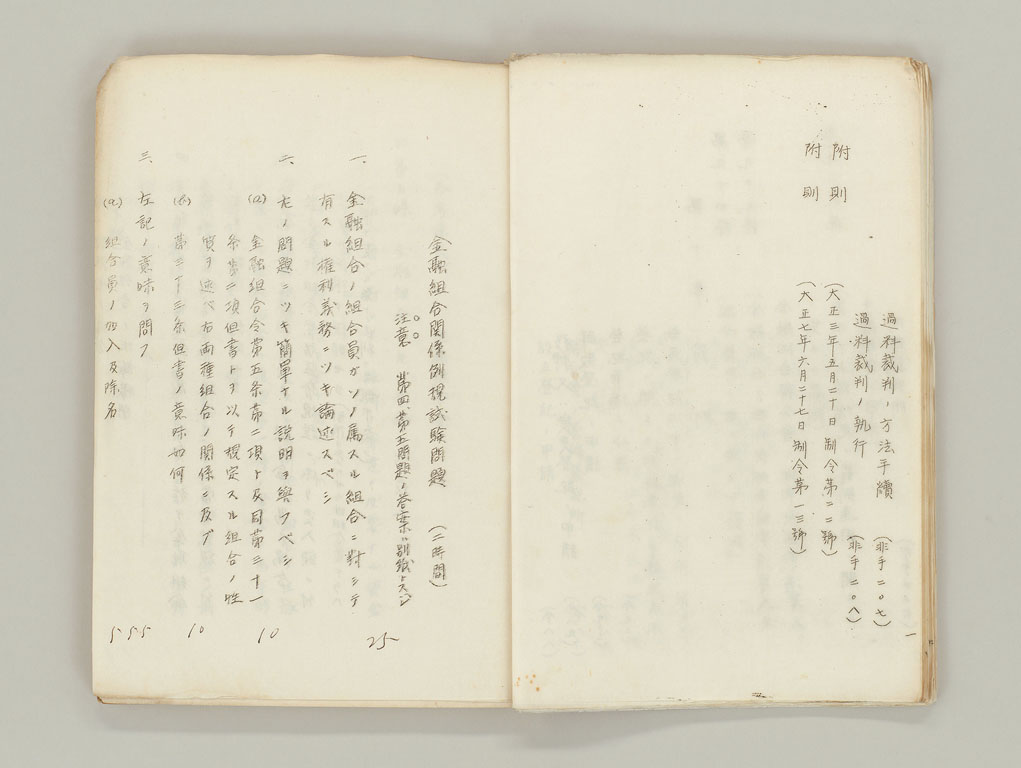 過料裁判ノ方法手續 (非手二〇七)
過料裁判ノ執行 (非手二〇八)
附則 (大正三年五月二十日制令第二二號)
附則 (大正七年六月二十七日制令第一三號)
金融組合関係例規試験問題 (二時間)
注意 第四、第五問題ノ答案ハ別紙トスベシ
一、金融組合ノ組合員ガソノ属スル組合ニ對シテ
有スル権利義務ニツキ論述スベシ
25
二、左ノ問題ニツキ簡單ナル説明ヲ與フベシ
(a) 金融組合令第五条第二項ト及同第三十一
条第二項但書トヲ以テ規定スル組合ノ性
質ヲ述ベ右両種組合ノ関係ニ及ブ
10
(b) 第三十三条但書ノ意味如何
10
三、左記ノ意味ヲ問フ
(a) 組合員ノ加入及除名
5 5 5